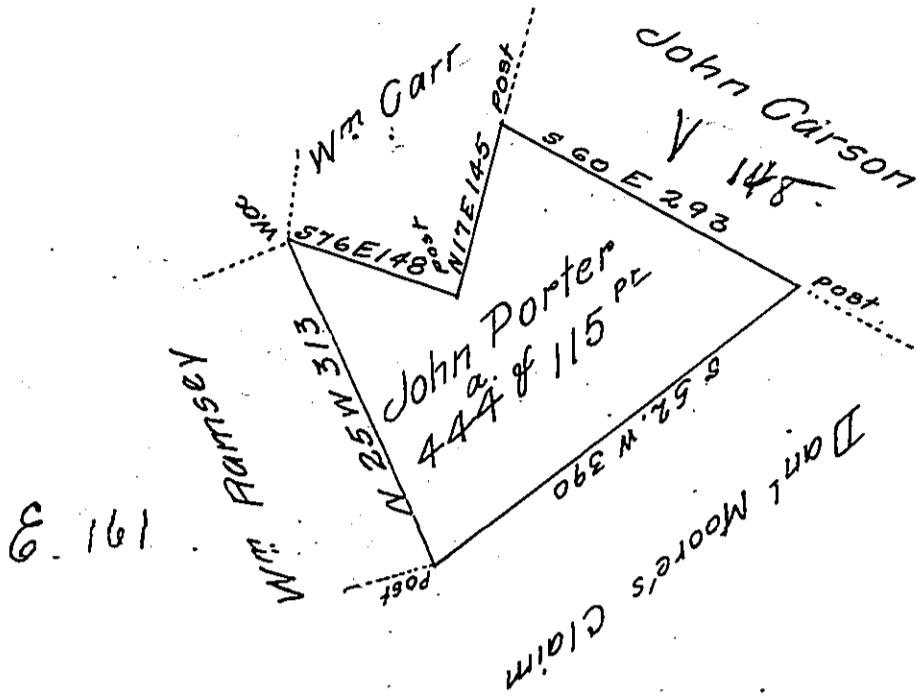 John Carson
V 148.
Wm Carr
Post
S 60 E 293
N 17 E 145
Post
S 76 E 148
W.O.
Post.
John Porter
444 a. & 115 Pr
N 25 W 313
S 52. W 390
Wm Ramsey
E. 161
Post
Danl Moore's Claim